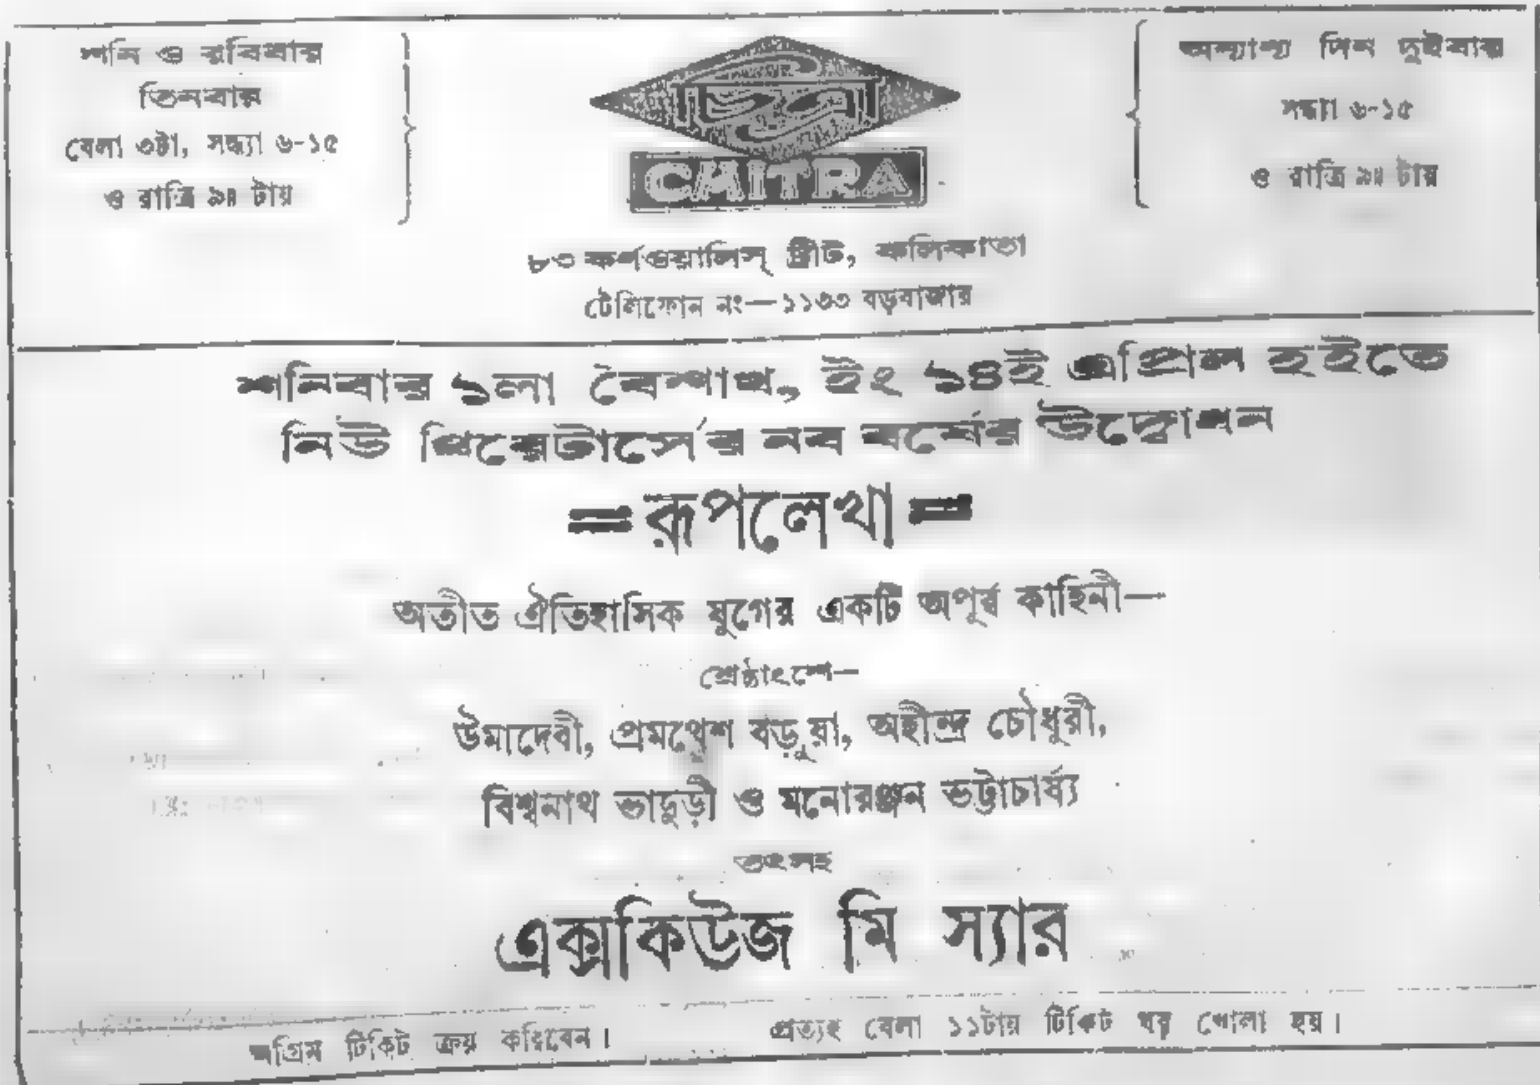 শনি ও রবিবার
তিনবার
বেলা ৩টা, সন্ধ্যা ৬-১৫
ও রাত্রি ৯॥ টায়
চিত্রা
CHITRA
৮৩ কর্ণওয়ালিস্ ষ্ট্রীট, কলিকাতা
টেলিফোন নং—১১৩৩ বড়বাজার
অন্যান্য দিন দুইবার
সন্ধ্যা ৬-১৫
ও রাত্রি ৯॥ টায়
শনিবার ১লা বৈশাখ, ইং ১৪ই এপ্রিল হইতে
নিউ থিয়েটার্সের নব বর্ষের উদ্বোধন
=রূপলেখা=
অতীত ঐতিহাসিক যুগের একটি অপূর্ব্ব কাহিনী—
শ্রেষ্ঠাংশে—
উমাদেবী, প্রমথেশ বড়ুয়া, অহীন্দ্র চৌধুরী,
বিশ্বনাথ ভাদুড়ী ও মনোরঞ্জন ভট্টাচার্য্য
তৎসহ
এক্সকিউজ মি স্যার
অগ্রিম টিকিট ক্রয় করিবেন।
প্রত্যহ বেলা ১১টায় টিকিট ঘর খোলা হয়।